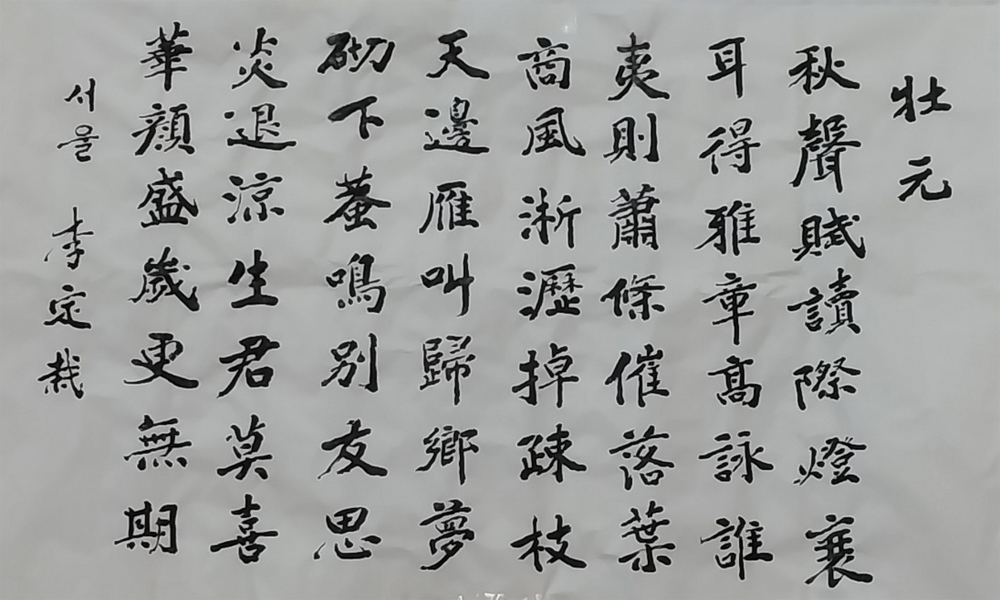 壯元
秋聲賦讀際燈襄
耳得雅章高詠誰
夷則蕭條催落葉
商風淅瀝掉疎枝
天邊雁叫歸鄉夢
砌下蛬鳴別友思
炎退涼生君莫喜
華顏盛歲更無期
서울 李定栽